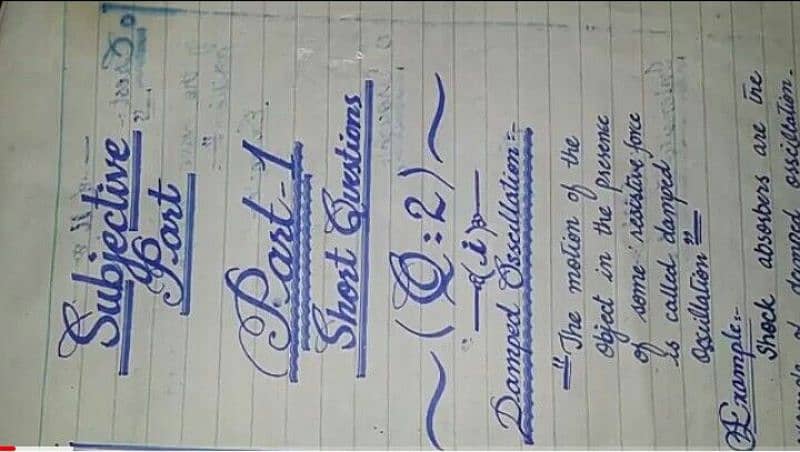 Subjective
Part
Part-1
Short Questions
~(Q:2)~
(i)
Damped Osscillation:-
"The motion of the
object in the presence
of some resistive force
is called damped
Oscillation"
Example:-
Shock absorbers are the
of damped osscillation.